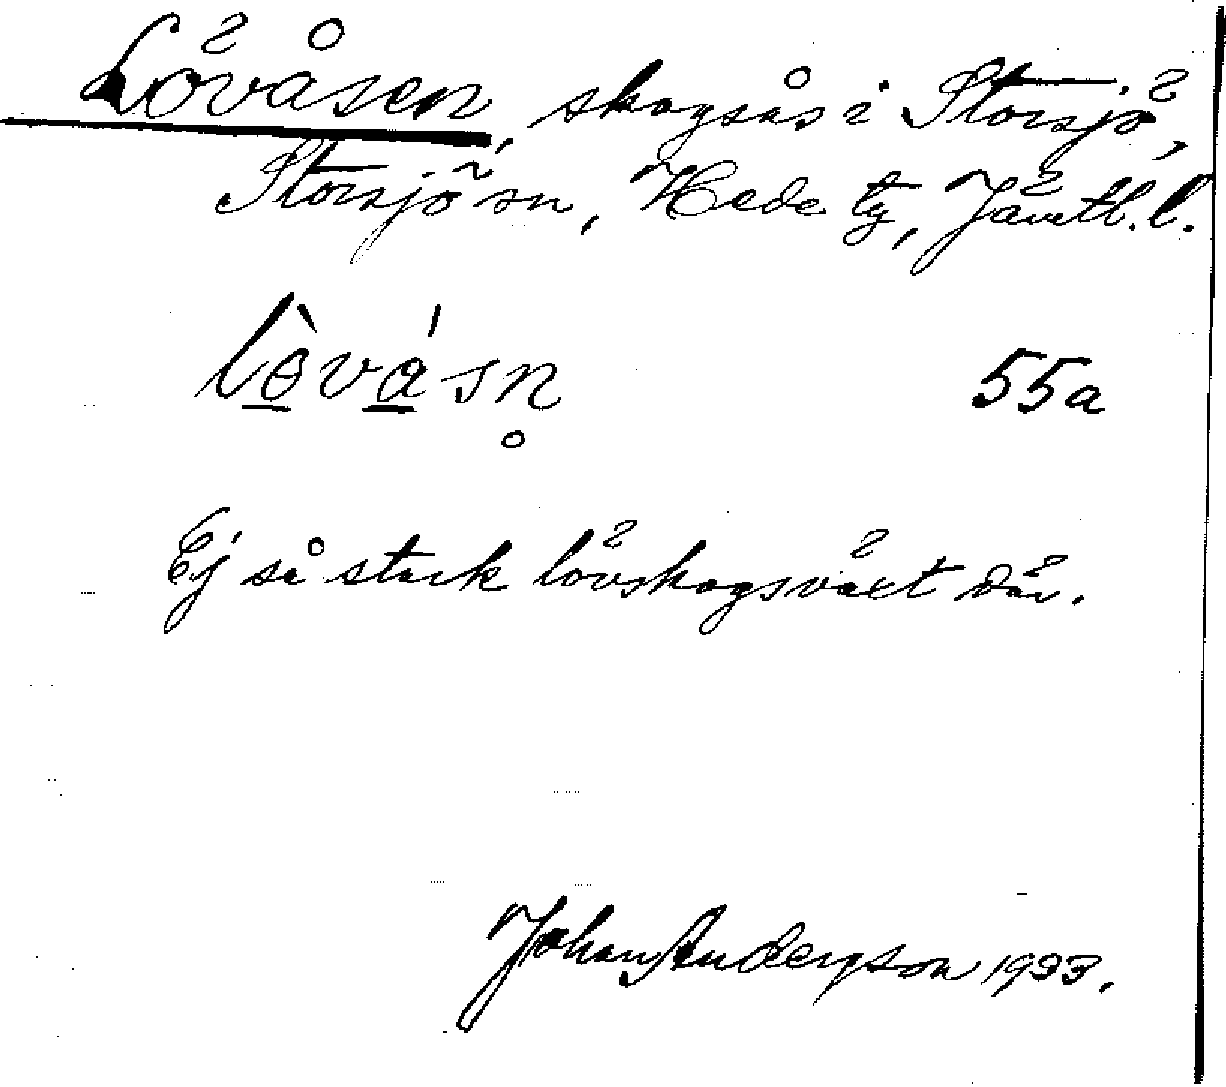 Lövåsen, skogsås i Storsjö,
Storsjö sn, Hede tg, Jämtl. l.
lɵ̀vásn̥ 55a
Ej så stark lövskogsväxt där.
Johan Anderson 1933.